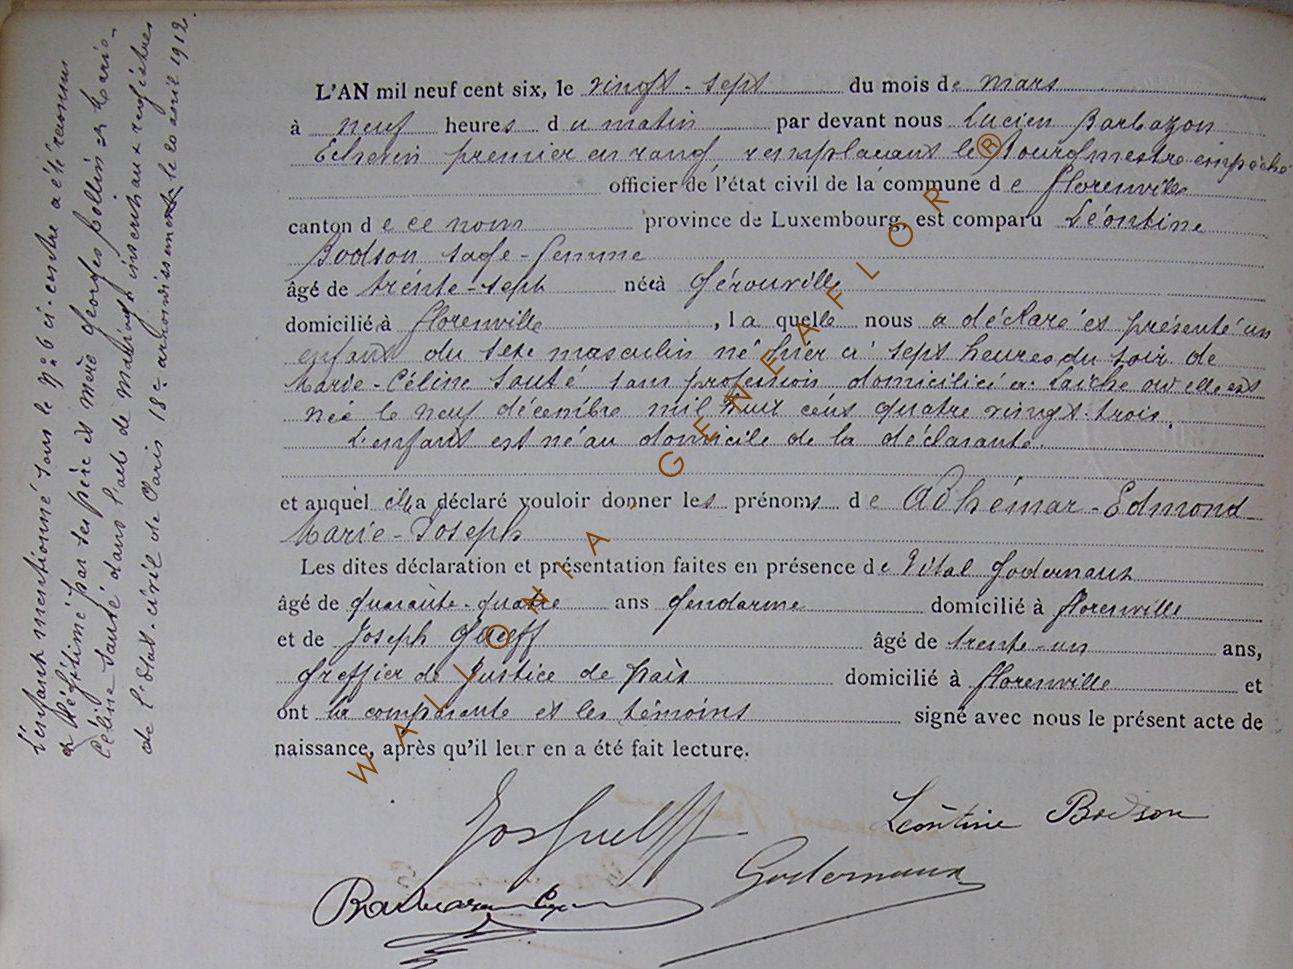 L'enfant mentionné sous le n° 6 ci-contre a été reconnu
et légitimé par ses père et mère Georges pollin et Marie-
Céline Sauté dans l'acte de mariage inscrit aux registres
de l'état-civil de Paris 18e arrondissement le 20 avril 1912.
L'AN mil neuf cent six, le vingt-sept du mois de mars
à neuf heures du matin par devant nous Lucien Barbazon
Echevin premier en rang, remplaçant le Bourgmestre empêché
officier de l'état civil de la commune de florenville
canton de ce nom province de Luxembourg, est comparu Léontine
Bodson sage-femme
âgé de trente-sept né à Gérouville
domicilié à florenville, laquelle nous a déclaré et présenté un
enfant du sexe masculin né hier à sept heures du soir de
Marie-Céline Sauté sans profession domiciliée à où elle est
née le neuf décembre mil huit cent quatre vingt-trois.
L'enfant est né au domicile de la déclarante.
et auquel elle a déclaré vouloir donner les prénoms de Adhémar-Edmond
Marie-Joseph
Les dites déclaration et présentation faites en présence de Vital Godernaux
âgé de quarante-quatre ans Gendarme domicilié à florenville
et de Joseph Guelff âgé de trente-un ans,
Greffier de Justice de paix domicilié à florenville et
ont la comparante et les témoins signé avec nous le présent acte de
naissance, après qu'il leur en a été fait lecture.
Jos Guelff
Léontine Bodson
Godernaux
WALLONIA - GENEAFLOR ®